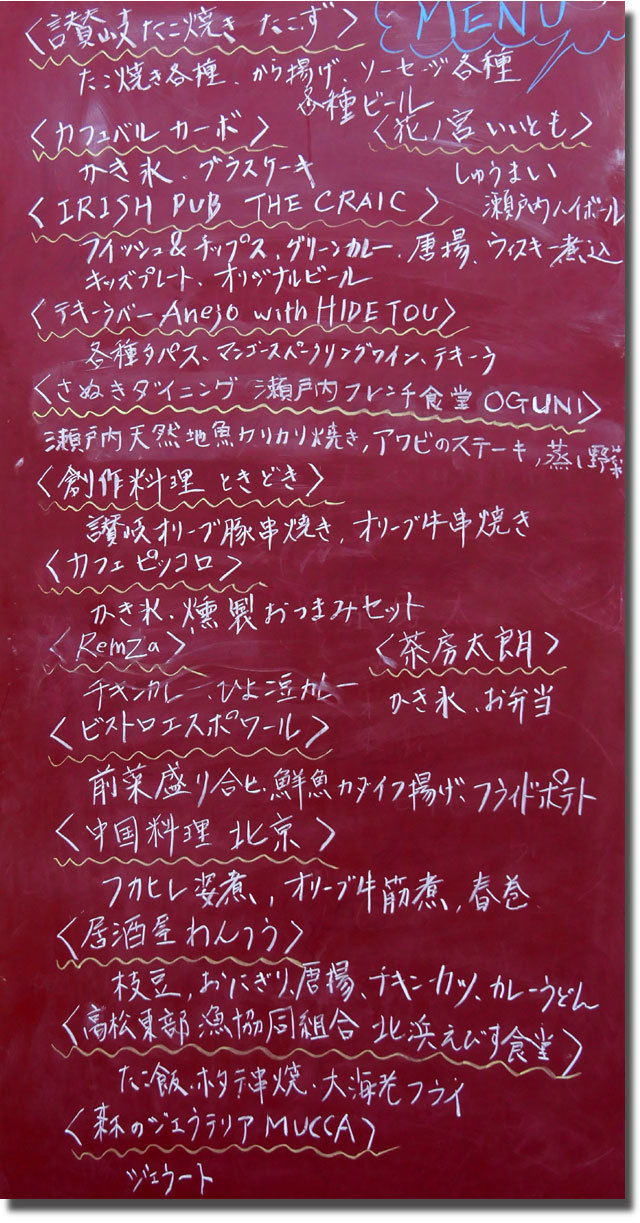 MENU
〈讃岐たこ焼き たこず〉
たこ焼き各種、から揚げ、ソーセージ各種
各種ビール
〈カフェバル カーボ〉
かき氷、ブラスケーキ
〈花ノ宮いいとも〉
しゅうまい
瀬戸内ハイボール
〈IRISH PUB THE CRAIC〉
フィッシュ&チップス、グリーンカレー、唐揚、ウィスキー煮込
キッズプレート、オリジナルビール
〈テキーラバー Anejo with HIDETOU〉
各種タパス、マンゴースパークリングワイン、テキーラ
〈さぬきダイニング 瀬戸内フレンチ食堂 OGUNI〉
瀬戸内天然地魚カリカリ焼き,アワビのステーキ,蒸し野菜
〈創作料理 ときどき〉
讃岐オリーブ豚串焼き,オリーブ牛串焼き
〈カフェ ピッコロ〉
かき氷、燻製おつまみセット
〈RemZa〉
チキンカレー、ひよこ豆カレー
〈茶房太朗〉
かき氷、お弁当
〈ビストロエスポワール〉
前菜盛り合せ、鮮魚カダイフ揚げ、フライドポテト
〈中国料理 北京〉
フカヒレ姿煮,オリーブ牛筋煮,春巻
〈居酒屋わんつう〉
枝豆,おにぎり、唐揚、チキンカツ、カレーうどん
〈高松東部漁協同組合 北浜えびす食堂〉
たこ飯、ホタテ串焼、大海老フライ
〈森のジェラテリア MUCCA〉
ジェラート